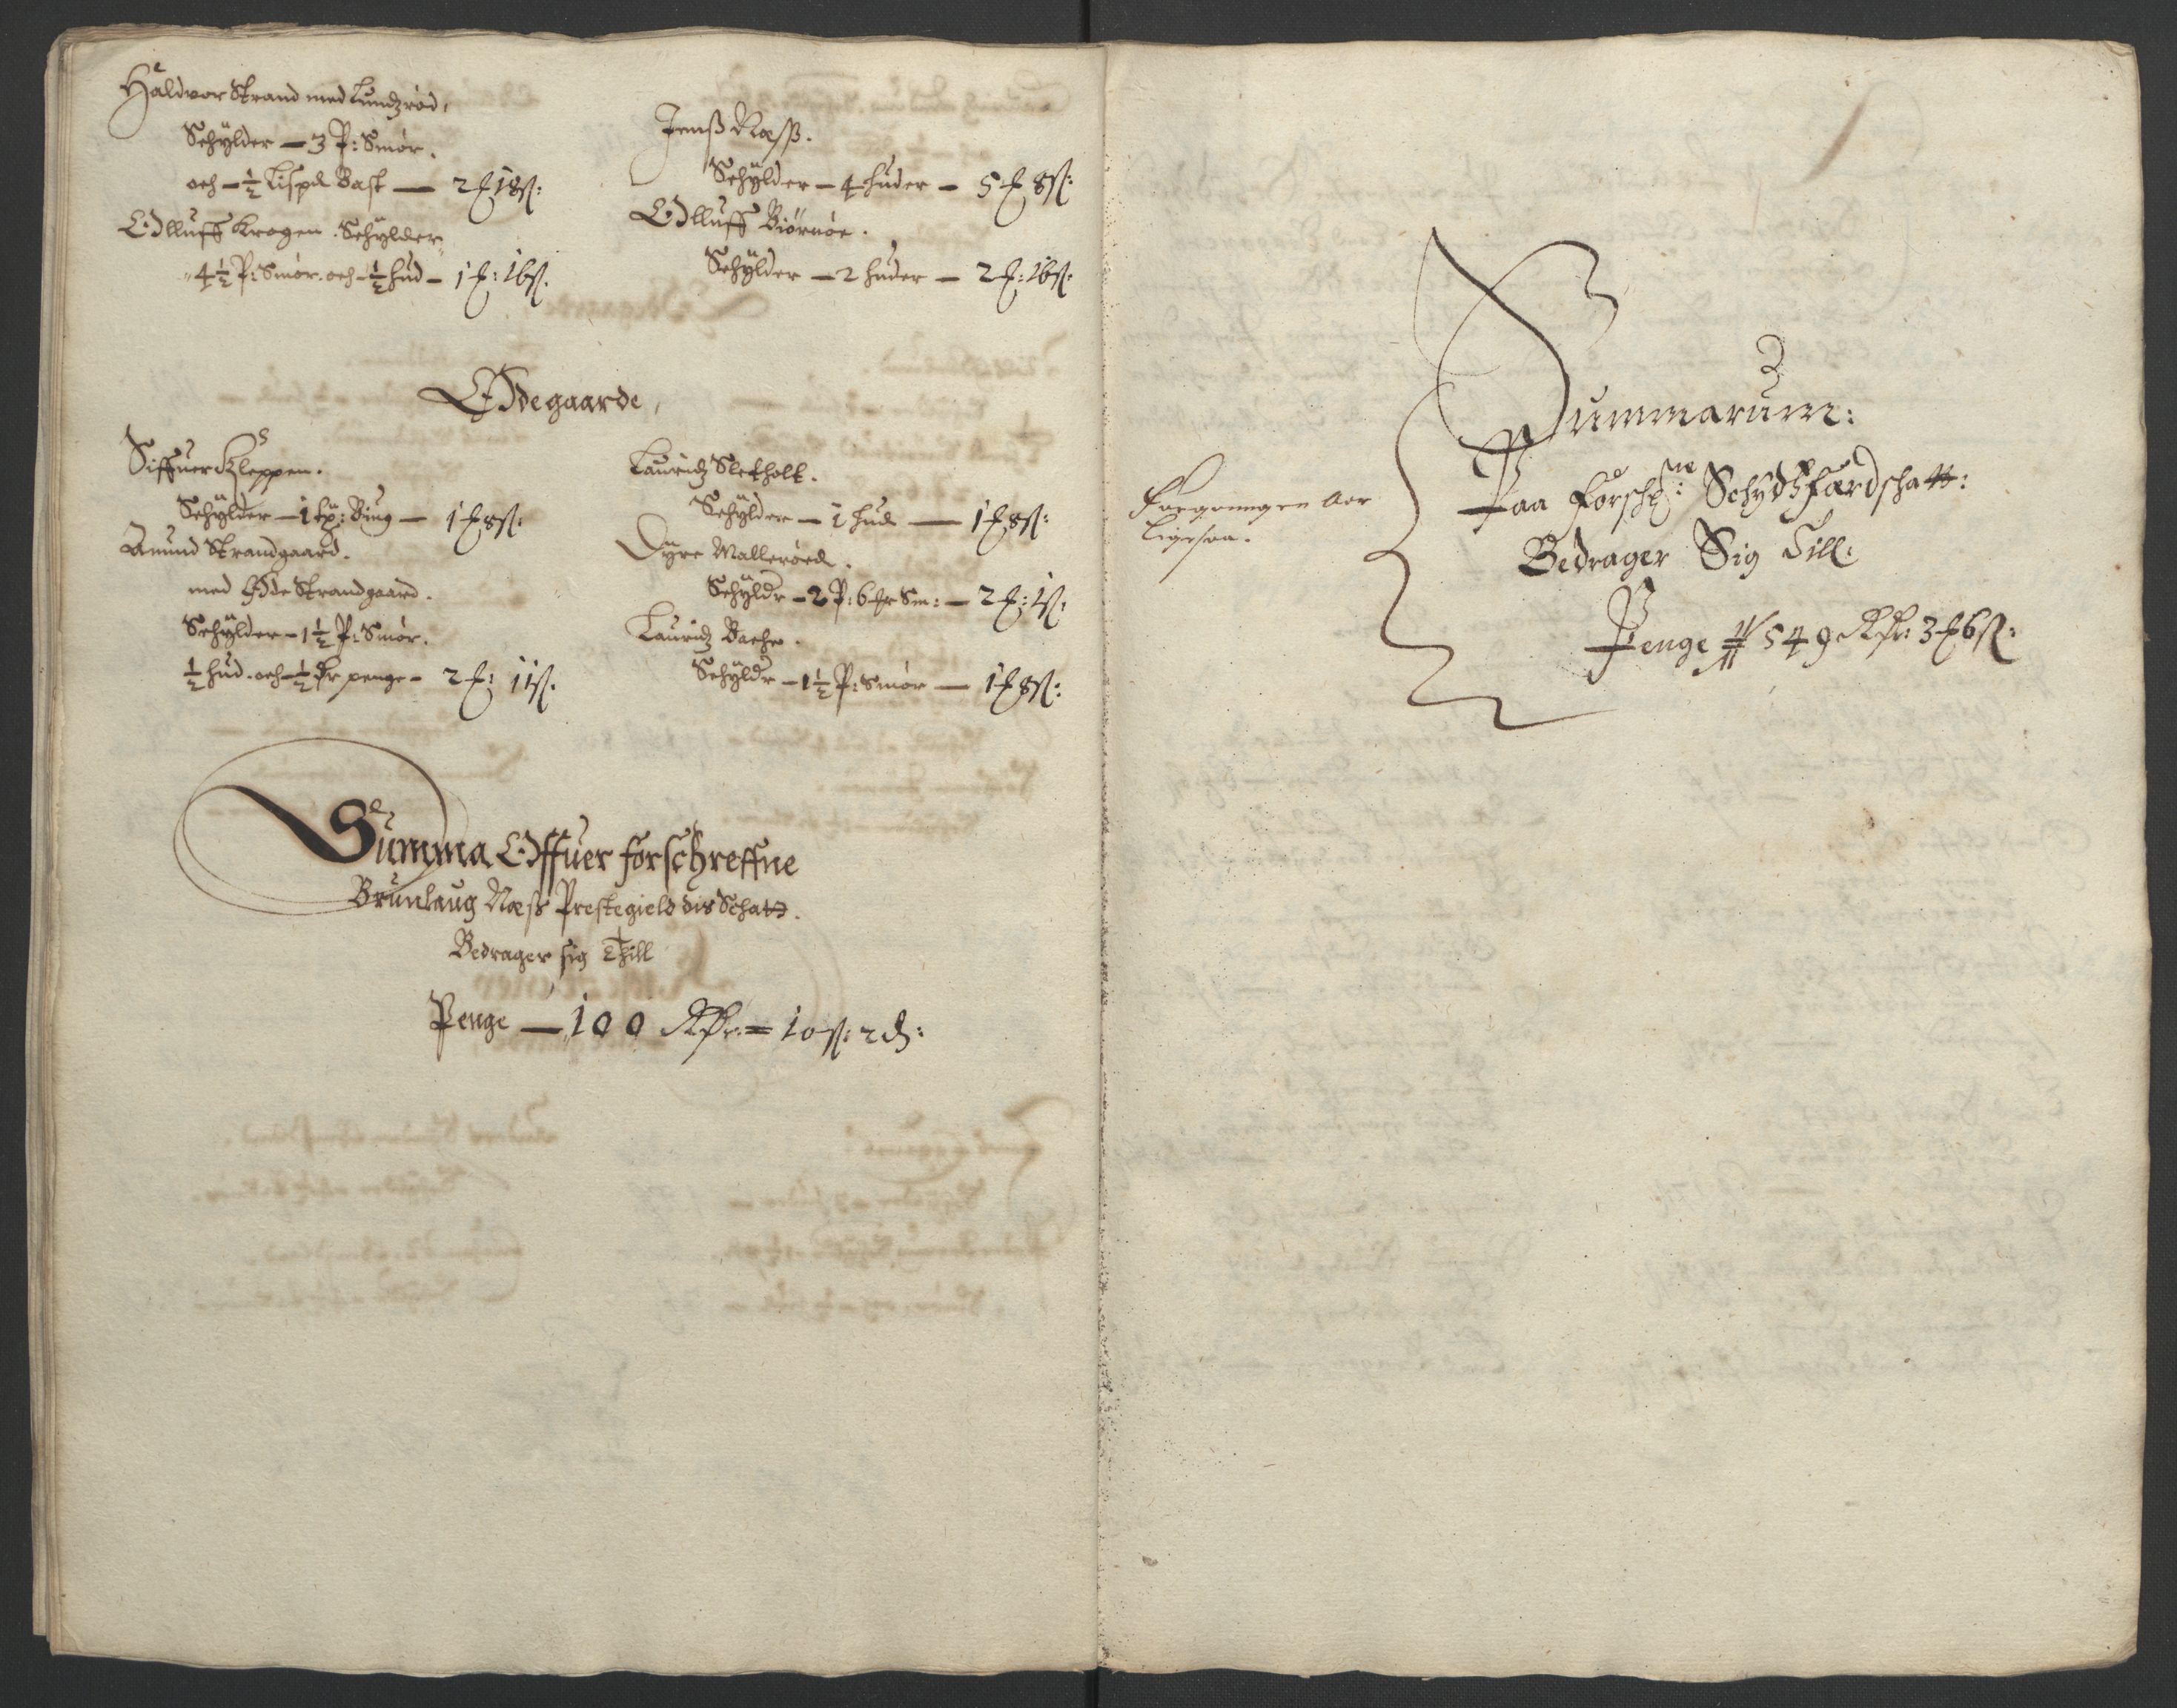 Haldvor Strand med Lundzrød,
Schylder — 3 P: Smør.
och — ½ Lispd Bast — 2 ƒ 18 ß:
Olluff Krogen. Schylder
4½ P: Smør. och — ½ hud — 1 ƒ: 16 ß.
Jenß Næss.
Schylder — 4 huder — 5 ƒ 8 ß:
Olluff Biørnøe.
Schylder — 2 huder — 2 ƒ: 16 ß:
Ødegaarde,
Siffuer Kleppen.
Schylder — 1 Biug — 1 ƒ 8 ß:
Amund Strandgaard.
med Øde Strandgaard.
Schylder — 1½ P: Smør.
½ hud. och — ½ penge — 2 ƒ: 11 ß.
Lauridz Sletholt.
Schylder — 1 hud — 1 ƒ 8 ß:
Dyre Mallerød.
Schyldr — 2 P: 6 Sm: — 2 ƒ: 1 ß.
Lauridz Bache.
Schyldr — 1½ P: Smør — 1 ƒ 8 ß:
Summa Offuer forschreffne
Brunlaug Næß Prestegield dis Schatt.
Bedrager sig Thill
Penge — 100 Rdr: = 10 ß: 2 d:
Summarum:
Foregaaende Aar
ligesaa.
Paa Forschr:ne Schydzfærdschatt:
Bedrager Sig Till:
Penge 549 Rdr: 3 ƒ 6 ß: